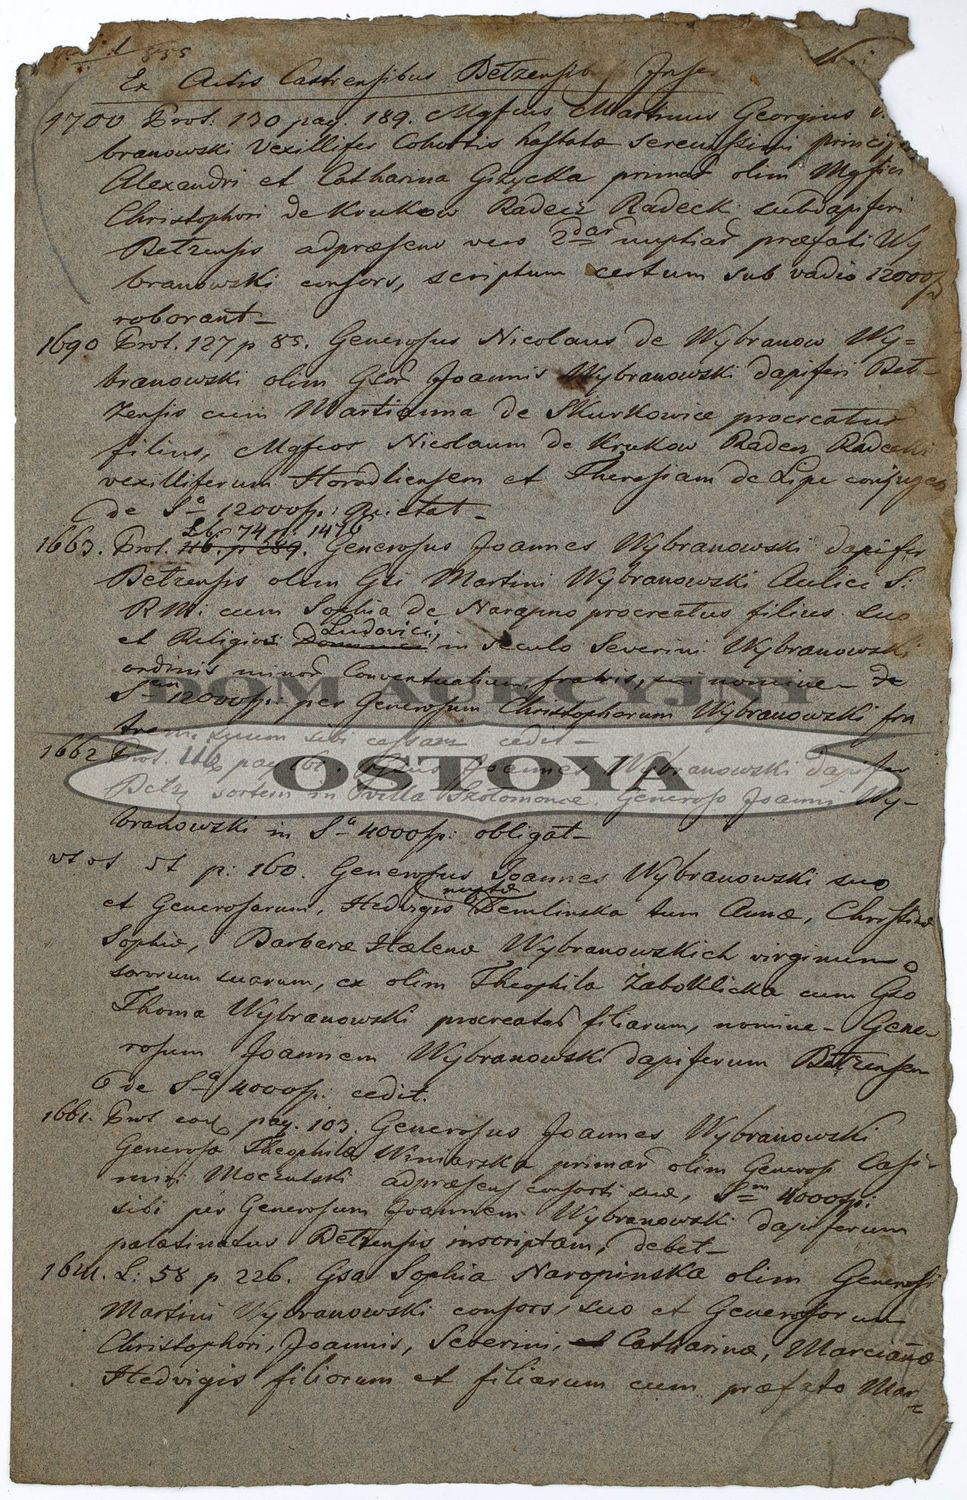 855
Ex Actis Castrensibus Betzensib
1700 Prot: 130 pag. 189. Mgfcus Martinus Georgius
branowski Vexillifer Cohortis hastatæ serenissimi principis
Alexandri et Catharina Giżycka olim Mgfici
Christophori de Krukow Radecz Radecki subdapiferi
Betzensis adpræsens vero 2dar nuptiar præfati Wy
branowski consors, scriptum certum sub vadio 12000
roborant
1690 Prot. 127 p 85. Generosus Nicolaus de Wybranow Wy=
branowski olim Joannis Wybranowski dapiferi Bet-
zensis cum Martianna de Skurkowice procreatus
filius, Mgfcos Nicolaum de Krukow Radecz Radecki
vexilliferum Horodliensem et Theresiam de Lipe conjuges
de Sa 12000fp: quietat
Lb: 74 p: 1470
1663. Prot. Generosus Joannes Wybranowski dapifer
Betzensis olim Gsi Martini Wybranowski Aulici S:
R M: cum Sophia de procreatus filius suo
et Religiosi Ludovici, in seculo Severini Wybranowski
ordinis minor Conventualium fratris, nomine
12000fp: per Generosum Christophorum Wybranowski fra
trem suum sibi cedit
1662 Prot. pag Joannes Wybranowski dapifer
Betz sortem in villa Generoso Joanni Wy-
branowski in Sa 4000fp: obligat
p: 160. Generosus Joannes Wybranowski suo
nuptæ
et Generosarum, Hedvigis Demlinska tum Annæ, Christinæ
Sophiæ, Barbaræ Hælenæ Wybranowskich virginum
sororum suarum, ex olim Theophila Zaboklicka cum Gso
Thoma Wybranowski procreatar filiarum, nomine Gene-
rosum Joannem Wybranowski dapiferum Betzensem
de Sa 4000fp: cedit.
1661. Prot eod pag. 103. Generosus Joannes Wybranowski
Generosæ Theophilæ Winiarska olim Generosi Casi-
miri Moczulski adpræsens consorti suæ, Sm 4000fp:
sibi per Generosum Joannem Wybranowski dapiferum
palatinatus Betzensis inscriptam, debet
L: 58 p 226. Gsa Sophia Naropinska olim Generosi
Martini Wybranowski consors, suo et Generosorum
Christophori, Joannis, Severini, et Catharinæ, Marciannæ
Hedvigis filiorum et filiarum cum præfato Mar-
DOM AUKCYJNY
OSTOYA